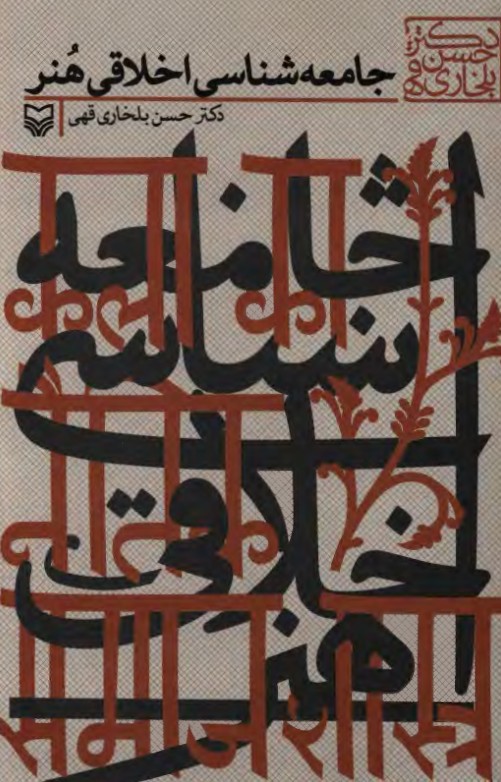 دکتر
حسن
بلخاری قهی
جامعه‌شناسی اخلاقی هُنر
دکتر حسن بلخاری قهی
جامعه
شناسی
اخلاقی
هنر
कला का
नैतिक
समाजशास्त्र